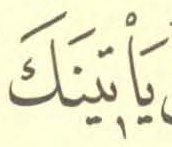 يَاْتٖينَكَ